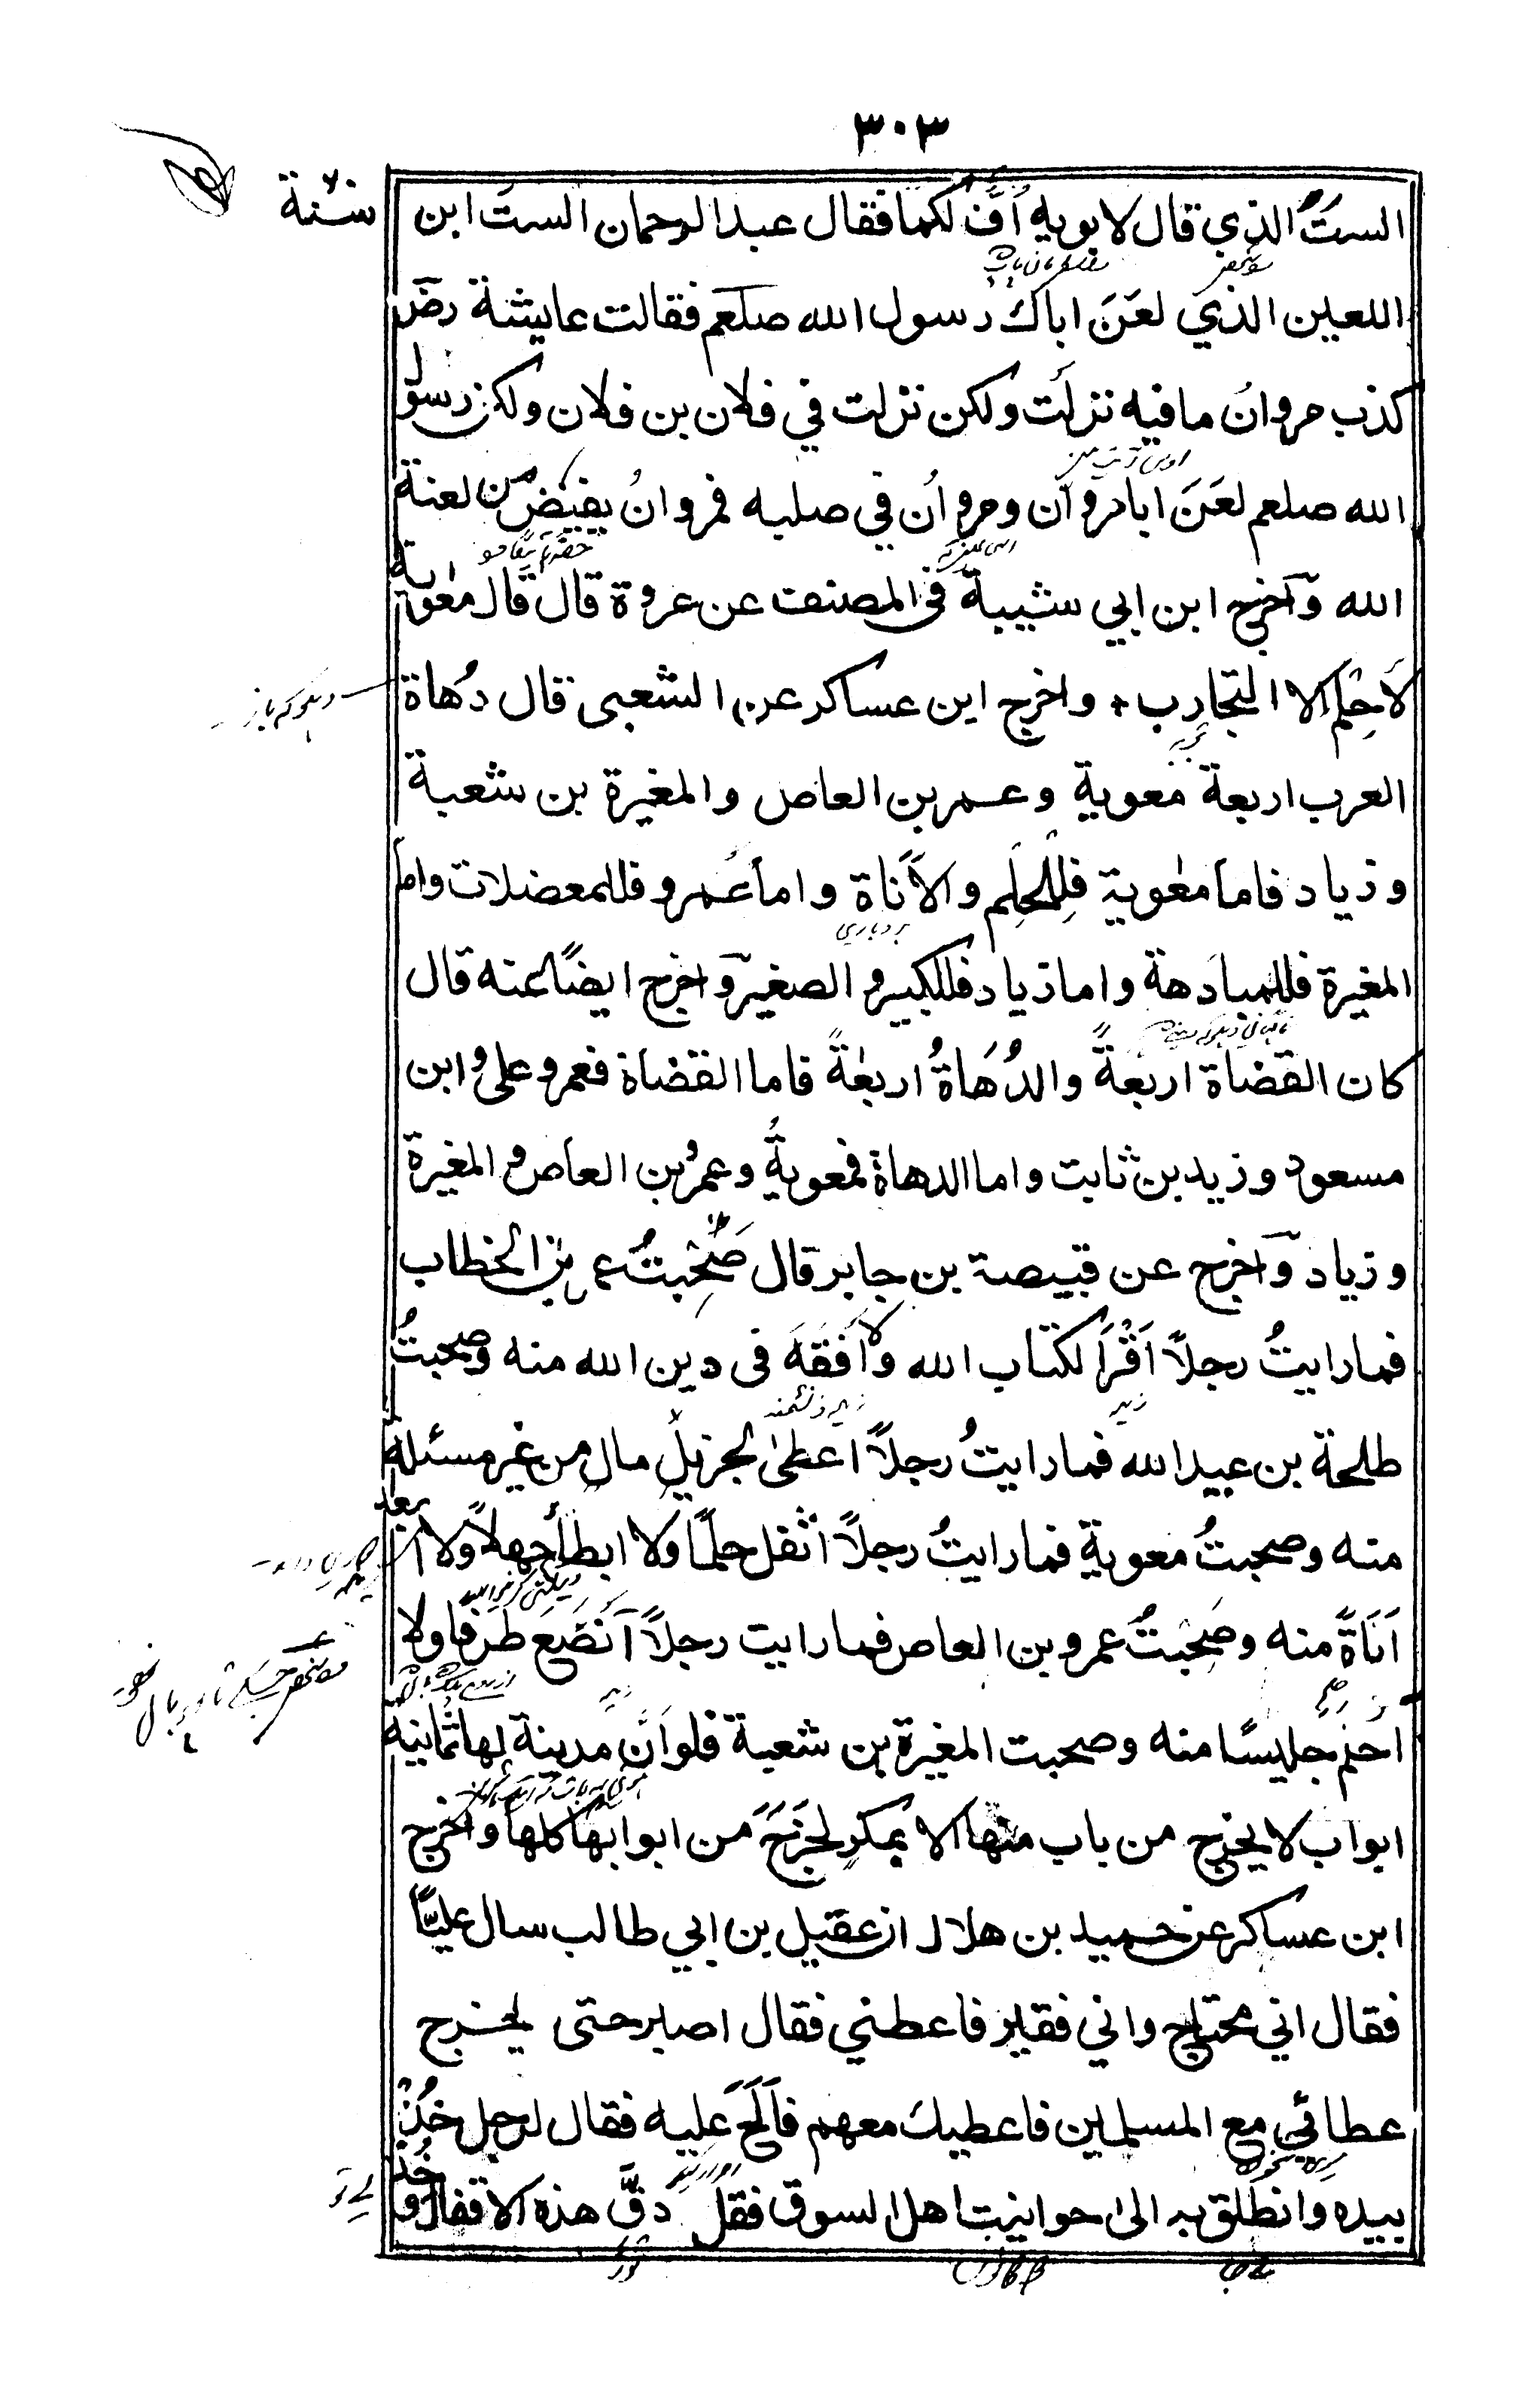 ٣٠٣
سنة
الستَ الذي قال لابويه اُفّ لكما فقال عبدالرحمان الستَ ابن
اللعين الذي لعَنَ اباك رسول الله صلعم فقالت عايشة رضّ
كذب مروان ما فيه نزلت ولكن نزلت في فلان بن فلان ولكن رسول
الله صلعم لعَنَ ابا مروان ومروان في صلبه فمروانُ يفيض من لعنة
الله وآخرج ابن ابي شيبة فى المصنف عن عروة قال قال معوية
لاَ حِلمَ الا التجارب واخرج ابن عساكر عن الشعبى قال دُهاة
العرب اربعة معوية وعمر بن العاص والمغيرة بن شعبة
وزياد فاما معوية فلِلحِلم والاَنَاة واما عَمرو فللمعضلات واما
المغيرة فللمبادهة واما زياد فللكبير و الصغير وآخرج ايضًا عنه قال
كان القضاة اربعةً والدُهَاةُ اربعةً فاما القضاة فعمر و على و ابن
مسعود وزيد بن ثابت واما الدهاة فمعويةُ وعمرُ بن العاص و المغيرة
وزياد وآخرج عن قبيصة بن جابر قال صَحِبتُ عمر بن الخطاب
فما رايتُ رجلاً اَقْرَأَ لكتاب الله ولا اَفقَهَ فى دين الله منه وصحبتُ
طلحة بن عبيد الله فما رايتُ رجلاً اعطى لجزيل مال من غير مسئلة
منه وصحبتُ معوية فما رايتُ رجلاً اثقل حلمًا ولا ابطأ جهلاً ولا ابعد
اَنَاةً منه وصَحِبْتُ عمرو بن العاص فما رايت رجلاً اَنصَعَ طَرفًا ولا
اَحْلَم جليسًا منه وصحبت المغيرة بن شعبة فلو اَنَّ مدينة لها ثمانية
ابواب لا يخرج من باب منها الا بمكرٍ لخَرَجَ من ابوابها كلها واخرج
ابن عساكر عن حميد بن هلال ان عقيل بن ابي طالب سال عليًّا
فقال اني محتاج واني فقير فاعطني فقال اصبر حتى يخرج
عطائي مع المسلمين فاعطيك معهم فاَلَحَّ عليه فقال لرجل خُذْ
بيده وانطلق به الى حوانيت اهل السوق فقل دقَّ هذه الاقفال وخُذْ